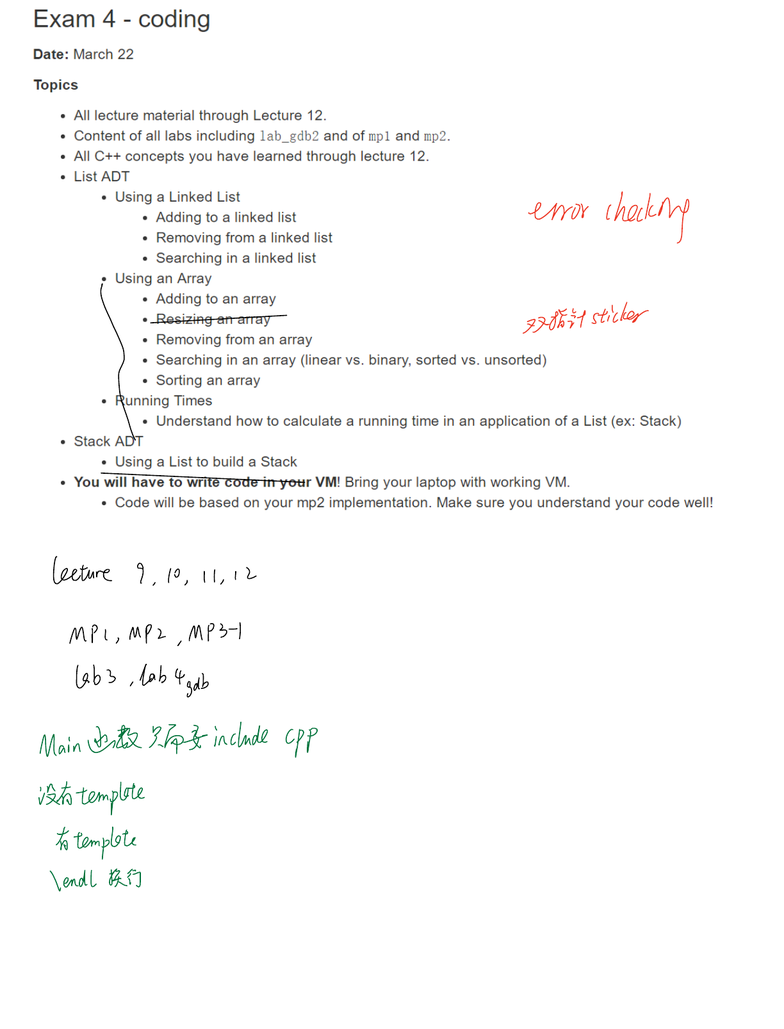 Exam 4 - coding
Date: March 22
Topics
All lecture material through Lecture 12.
Content of all labs including lab_gdb2 and of mp1 and mp2.
All C++ concepts you have learned through lecture 12.
List ADT
Using a Linked List
Adding to a linked list
Removing from a linked list
Searching in a linked list
error checking
Using an Array
Adding to an array
Resizing an array
双指针 sticker
Removing from an array
Searching in an array (linear vs. binary, sorted vs. unsorted)
Sorting an array
Running Times
Understand how to calculate a running time in an application of a List (ex: Stack)
Stack ADT
Using a List to build a Stack
You will have to write code in your VM! Bring your laptop with working VM.
Code will be based on your mp2 implementation. Make sure you understand your code well!
lecture 9, 10, 11, 12
MP1, MP2, MP3-1
lab3, lab4 gdb
Main 函数 只需要 include cpp
没有 template
有 template
\endl 换行